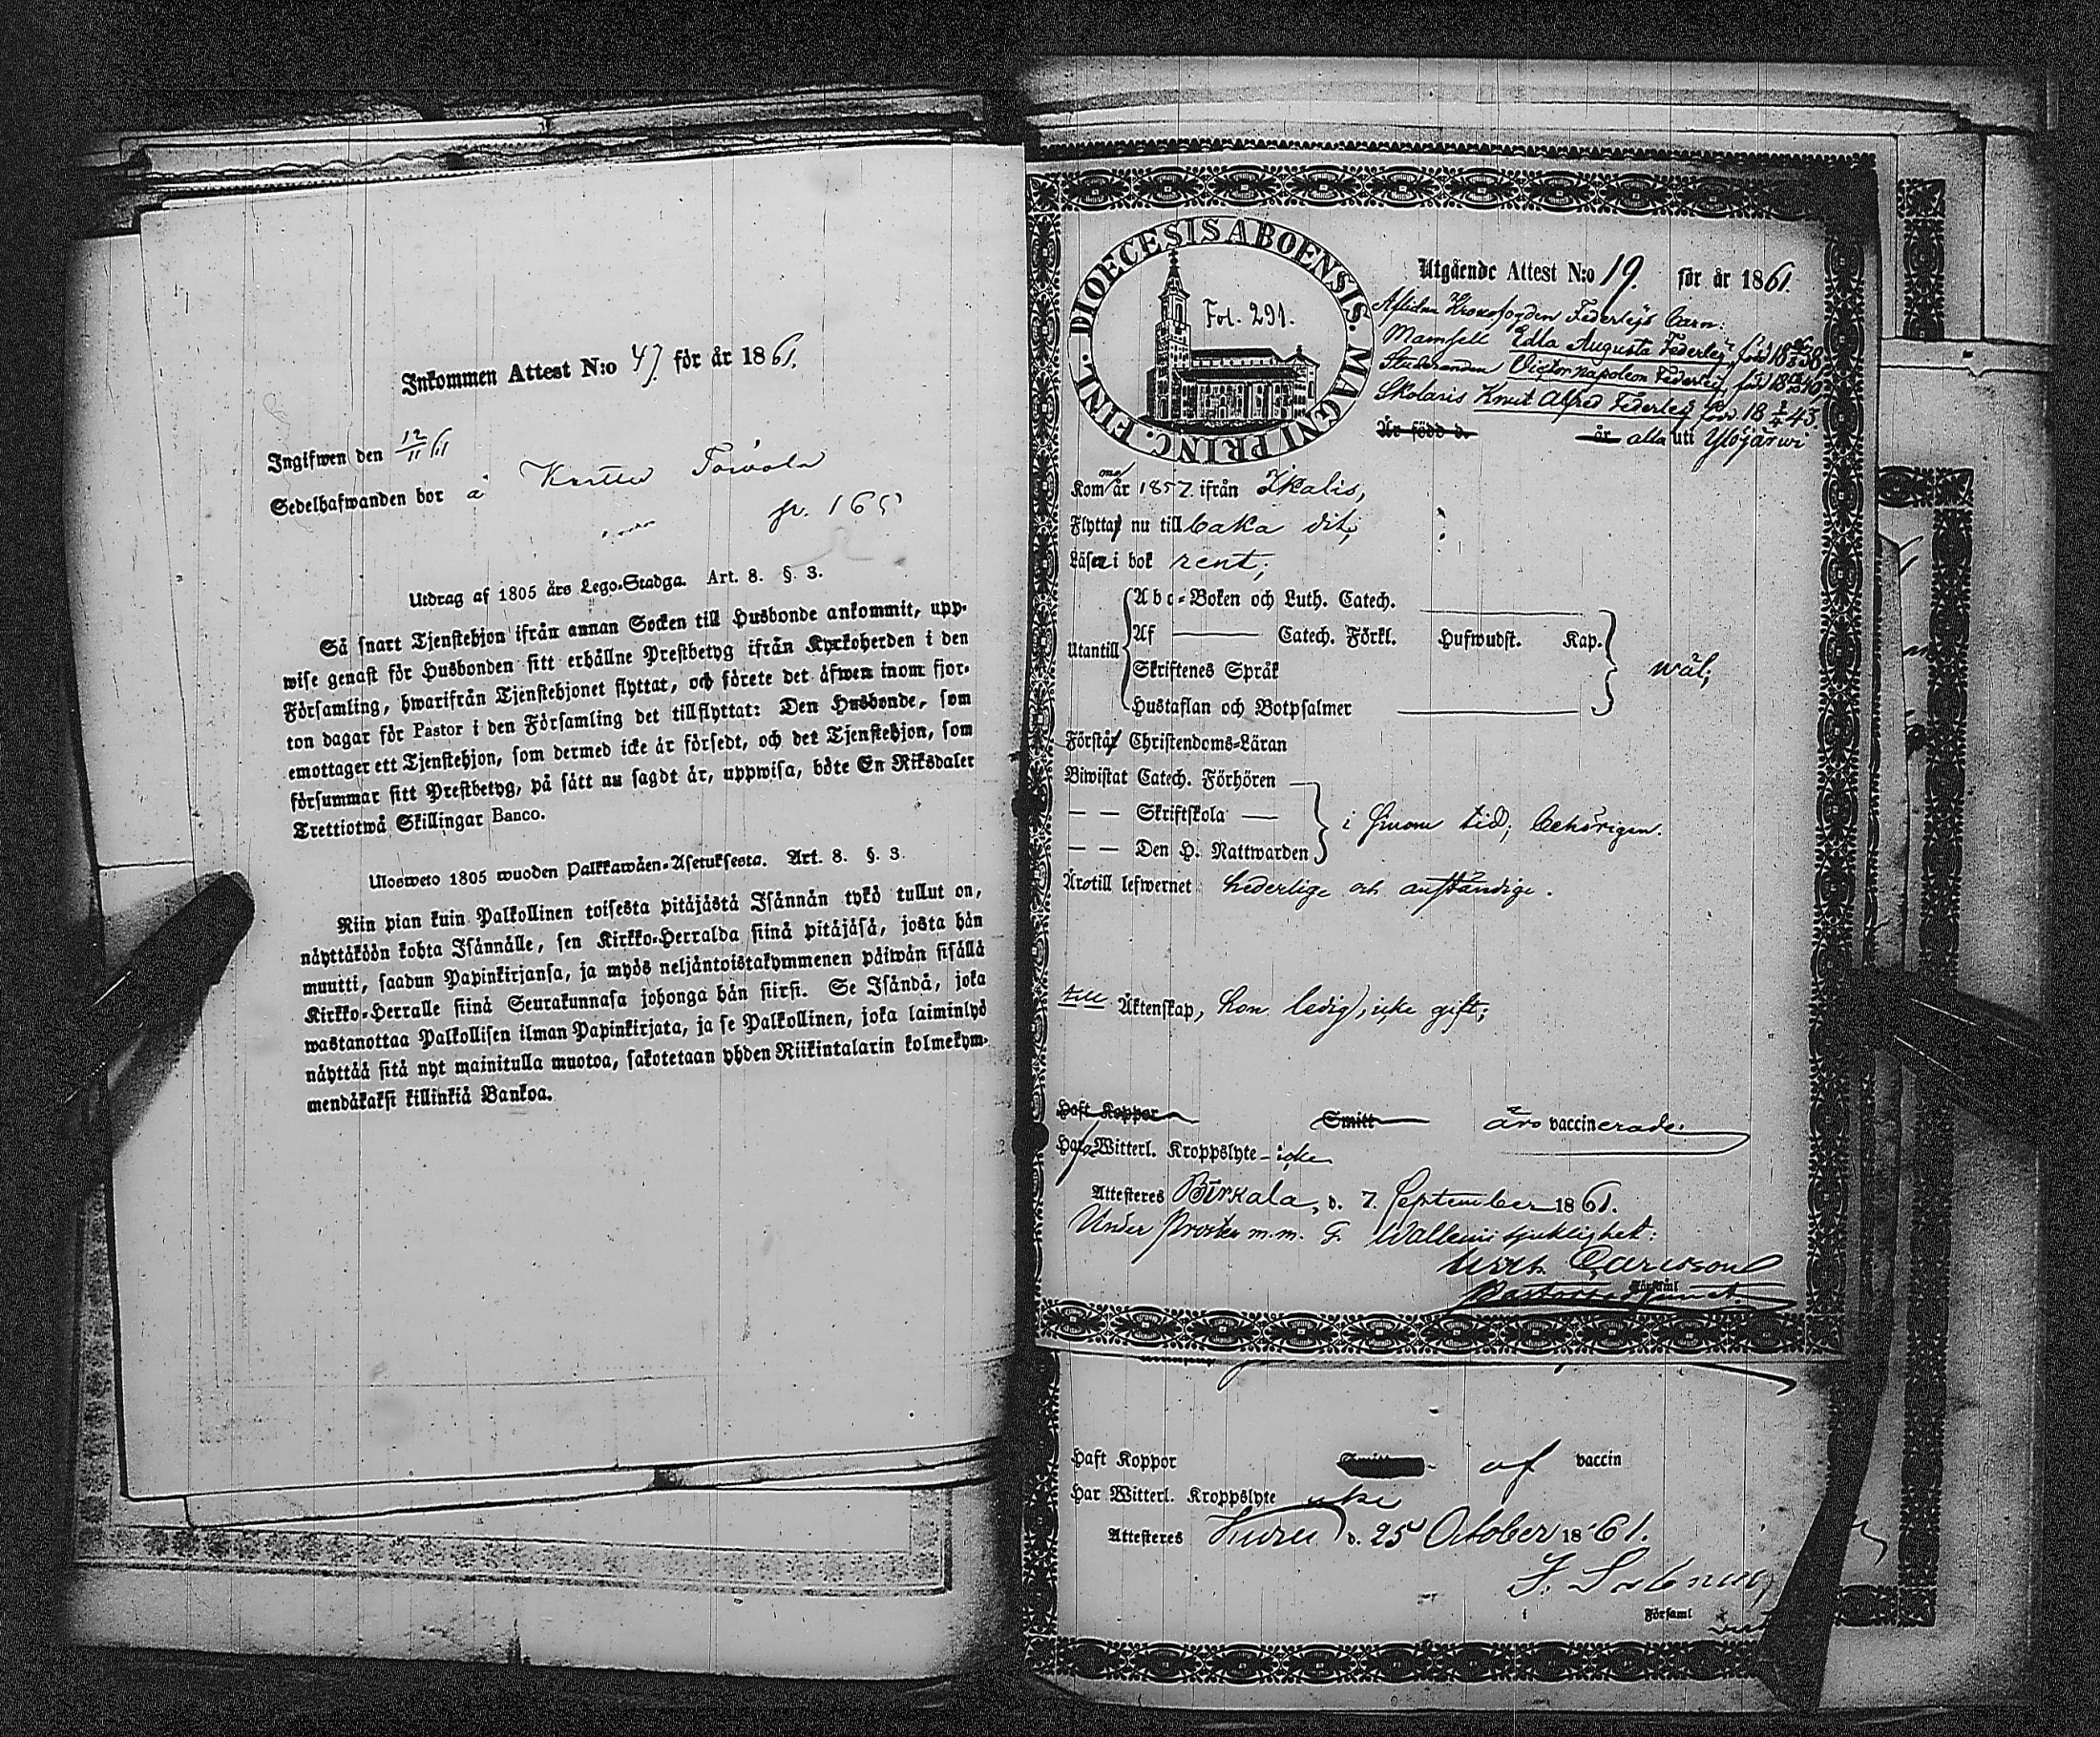 Inkommen Attest N:o 47 för år 1861.
Ingifwen den 12/11 61
Sedelhafwanden bor å
p. 165
Utdrag af 1805 års Lego-Stadga. Art. 8. §. 3.
Så snart Tjenstehjon ifrån annan Socken till Husbonde ankommit, upp-
wise genast för Husbonden sitt erhållne Prestbetyg ifrån Kyrkoherden i den
Församling, hwarifrån Tjenstehjonet flyttat, och förete det äfwen inom fjor-
ton dagar för Pastor i den Församling det tillflyttat: Den Husbonde, som
emottager ett Tjenstehjon, som dermed icke är försedt, och det Tjenstehjon, som
försummar sitt Prestbetyg, på sätt nu sagdt är, uppwisa, böte En Riksdaler
Trettiotwå Skillingar Banco.
Ulosweto 1805 wuoden Palkkawäen-Asetuksesta. Art. 8. §. 3.
Niin pian kuin Palkollinen toisesta pitäjästä Isännän tykö tullut on,
näyttäköön kohta Isännälle, sen Kirkko-Herralda siinä pitäjäsä, josta hän
muutti, saadun Papinkirjansa, ja myös neljäntoistakymmenen päiwän sisällä
Kirkko-Herralle siinä Seurakunnasa johonga hän siirsi. Se Isändä, joka
wastanottaa Palkollisen ilman Papinkirjata, ja se Palkollinen, joka laiminlyö
näyttää sitä nyt mainitulla muotoa, sakotetaan yhden Riikintalarin kolmekym-
mendäkaksi killinkiä Bankoa.
DIOECESIS ABOENSIS. MAGNI PRINC. FINL.
Fol. 291.
Utgående Attest N:o 19. för år 1861.
Aflidne Kronofogden Federleys barn:
Mamsell Edla Augusta Federley, född 18 38
Studeranden Victor Napoleon Federley född 18 40
Skolaris Knut Alfred Federley född 18 43
Är född d. är alla uti Ylöjärwi
Kommo år 1857 ifrån Ikalis,
Flytta nu tillbaka dit;
Läsa i bok rent;
Utantill
Abc-Boken och Luth. Catech.
Af Catech. Förkl. Hufwudst. Kap.
Skriftenes Språk
Hustaflan och Botpsalmer
wäl;
Förstå Christendoms-Läran
Biwistat Catech. Förhören
— — Skriftskola
— — Den H. Nattwarden
i sinom tid, behörigen.
Äro till lefwernet hederlige och anständige.
till Äktenskap, hon ledig, icke gift;
Haft Koppor Smitt äro vaccinerade.
Hafwa Witterl. Kroppslyte - icke
Attesteras Birkala, d. 7. September 1861.
Under Prosten m.m. G. Wallenii sjuklighet:
Carlsson
Pastorsadjunct.
Haft Koppor Smitt af vaccin
Har Witterl. Kroppslyte icke
Attesteras Kuru d. 25 October 1861.
i Församl